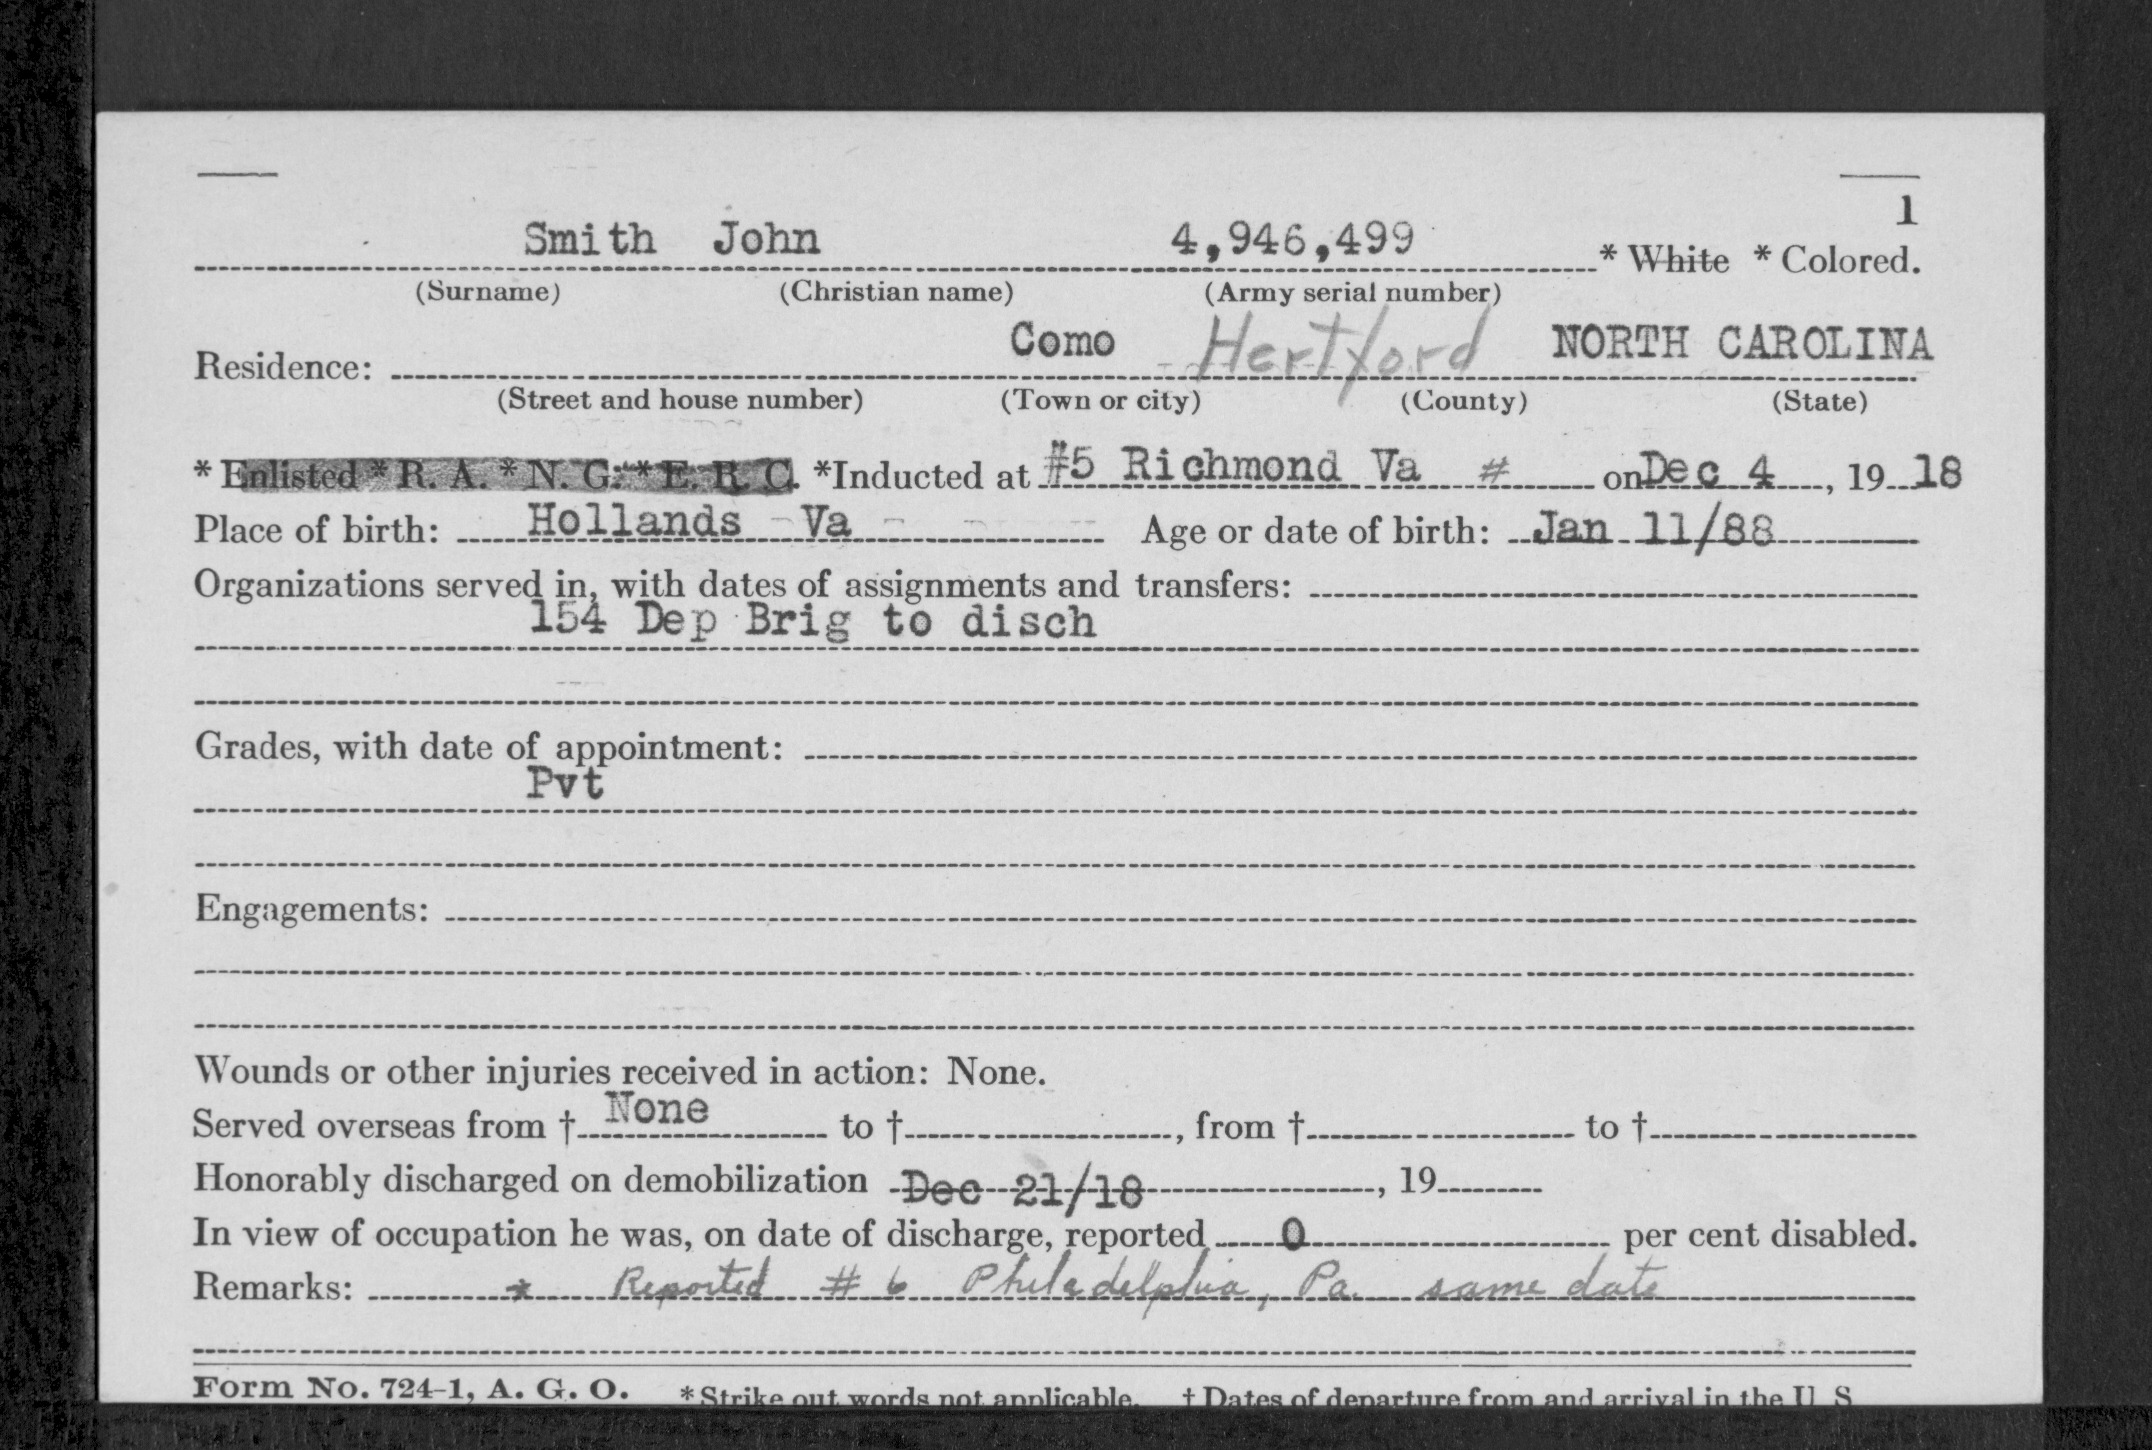 1
Smith John 4,946,499 * White * Colored.
(Surname) (Christian name) (Army serial number)
Residence: Como Hertford NORTH CAROLINA
(Street and house number) (Town or city) (County) (State)
* Enlisted * R. A. * N. G. * E. R. C. *Inducted at #5 Richmond Va # on Dec 4, 1918
Place of birth: Hollands Va Age or date of birth: Jan 11/88
Organizations served in, with dates of assignments and transfers:
154 Dep Brig to disch
Grades, with date of appointment:
Pvt
Engagements:
Wounds or other injuries received in action: None.
Served overseas from † None to †, from † to †
Honorably discharged on demobilization Dec 21/18, 19
In view of occupation he was, on date of discharge, reported 0 per cent disabled.
Remarks: * Reported # 6 Philadelphia, Pa. same date
Form No. 724-1, A. G. O. * Strike out words not applicable. † Dates of departure from and arrival in the U S